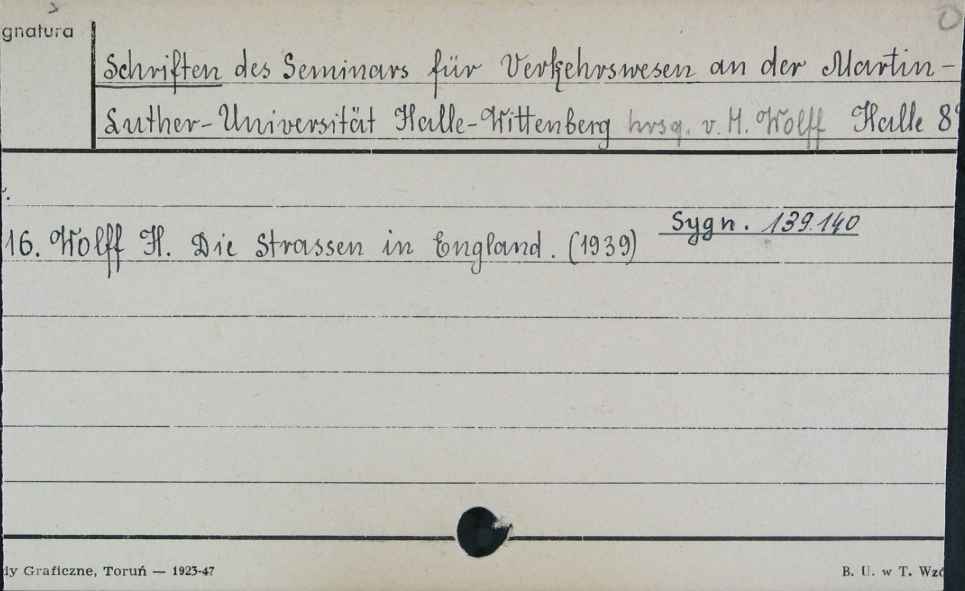 gnatura
Schriften des Seminars für Verkehrswesen an der Martin-
Luther-Universität Halle-Wittenberg hrsg. v. H. Wolff Halle 8°
16. Wolff H. Die Strassen in England. (1939) Sygn. 139.140
dy Graficzne, Toruń — 1923-47 B. U. w T. Wzó